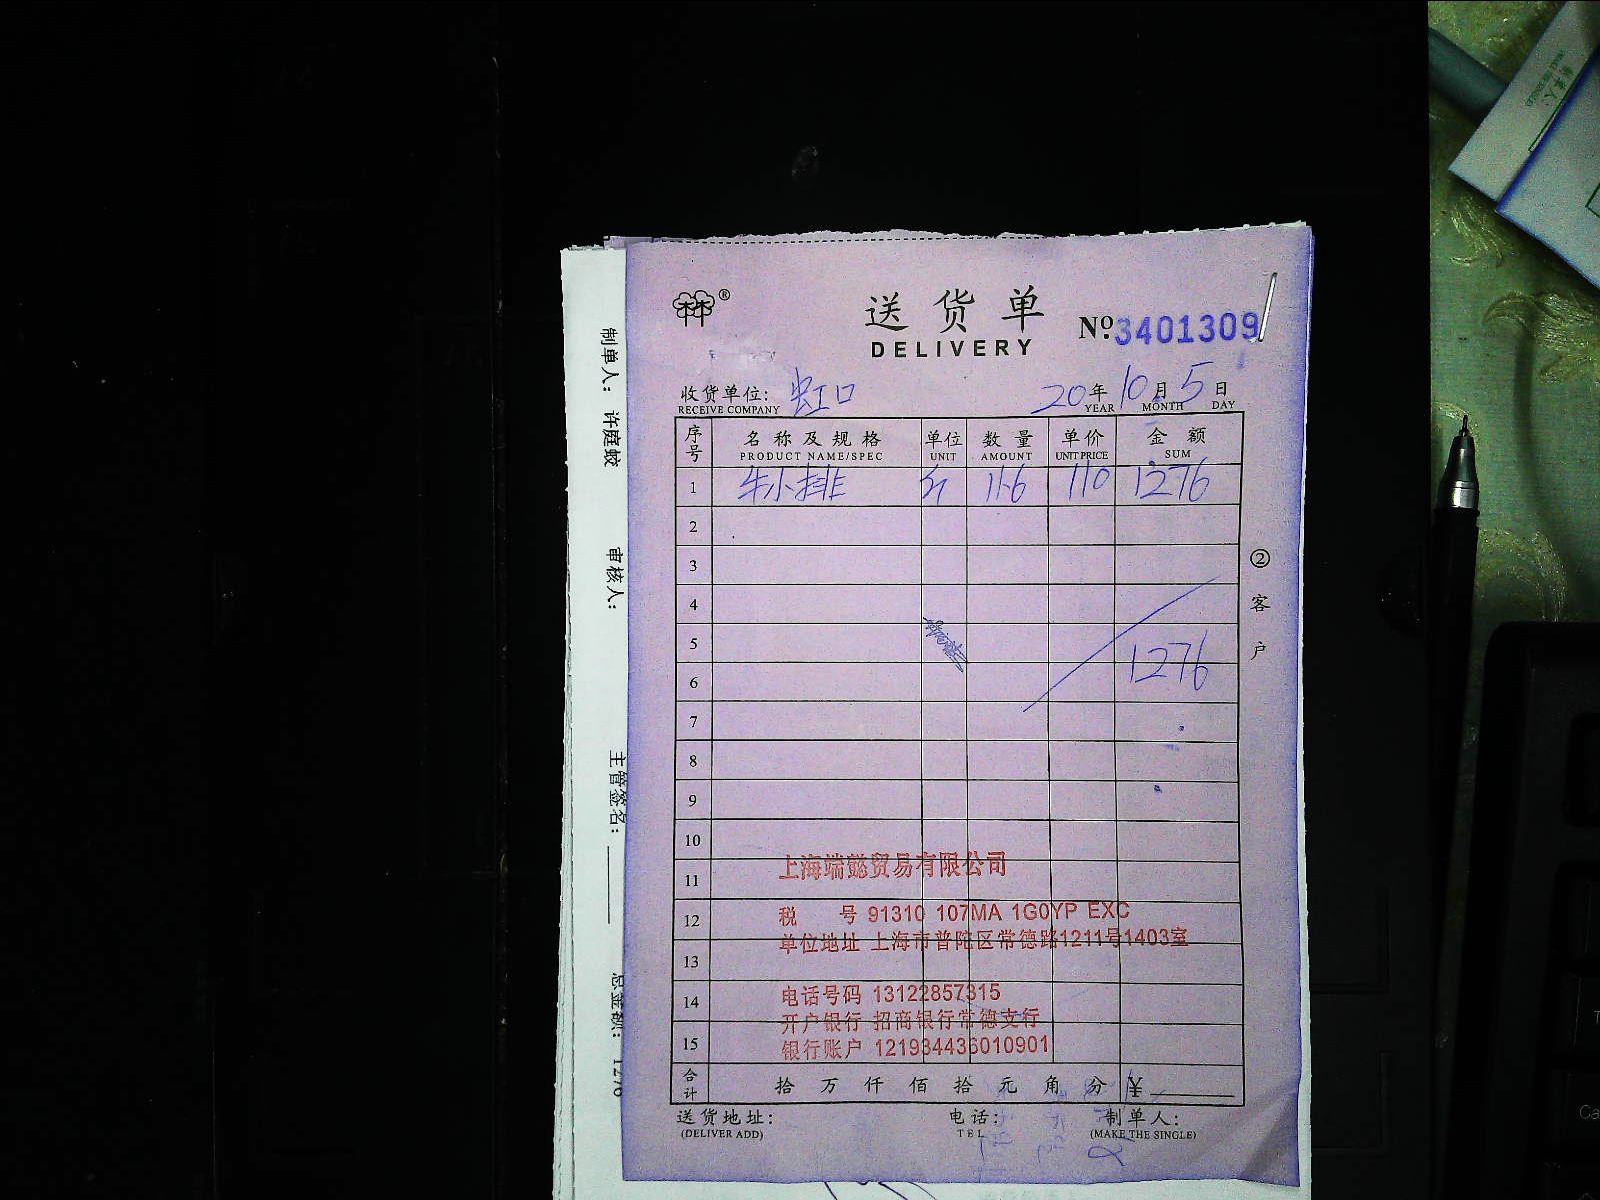 送货单
DELIVERY
№ 3401309
收货单位: 虹口 20年10月5日
RECEIVE COMPANY YEAR MONTH DAY
序号 名称及规格 单位 数量 单价 金额
PRODUCT NAME/SPEC UNIT AMOUNT UNIT PRICE SUM
1 牛小排 斤 11.6 110 1276
2
3
4
5
6 1276
7
8
9
10
11 上海端懿贸易有限公司
12 税 号 91310 107MA 1G0YP EXC
单位地址 上海市普陀区常德路1211号1403室
13
14 电话号码 13122857315
开户银行 招商银行常德支行
15 银行账户 121934436010901
合计 拾万仟佰拾元角分 ¥
送货地址: 电话: 制单人:
(DELIVER ADD) TEL (MAKE THE SINGLE)
② 客户
制单人: 许庭蛟 审核人: 主管签名: 总金额: 1276